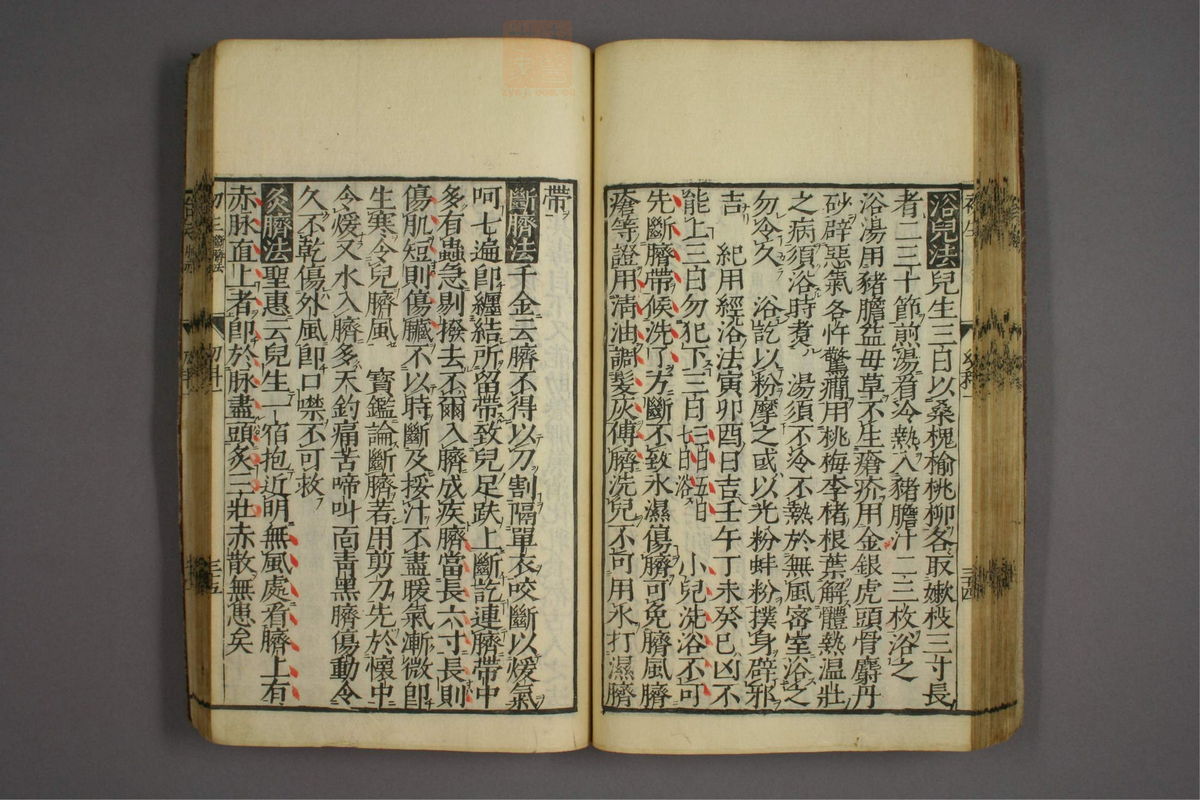 浴兒法兒生三日以桑槐榆桃柳各取嫩枝三寸長
者二三十節煎湯看冷熱入豬膽汁二三枚浴之
浴湯用豬膽益母草不生瘡疥用金銀虎頭骨麝丹
砂辟惡氣客忤驚癇用桃梅李楮根葉解體熱温壯
之病須浴時煑湯須不冷不熱於無風密室浴之
勿令久　浴訖以粉摩之或以光粉蚌粉撲身辟邪
吉　紀用經浴法寅卯酉日吉壬午丁未癸巳凶不
能上三日勿犯下三日二日五日七日浴　小兒洗浴不可
先斷臍帶候洗了方斷不致水濕傷臍可免臍風臍
瘡等證用清油調髮灰傅臍洗兒不可用水打濕臍
帶
斷臍法千金云臍不得以刀割隔單衣咬斷以煖氣
呵七遍卽纏結所留帶致兒足趺上斷訖連臍帶中
多有蟲急剔撥去不爾入臍成疾臍當長六寸長則
傷肌短則傷臟不以時斷及挼汁不盡暖氣漸微卽
生寒令兒臍風　寶鑑論斷臍若用剪刀先於懷中
令煖又水入臍多天釣痛苦啼叫面靑黑臍傷動令
久不乾傷外風卽口噤不可救
灸臍法聖惠云兒生一宿抱近明無風處看臍上有
赤脉面上者卽於脉盡頭炙三壯赤散無患矣
幼科一
三十四
三十五